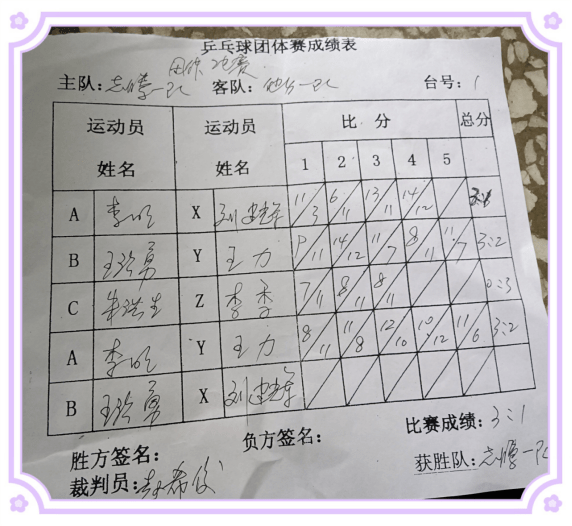 乒乓球团体赛成绩表
团体决赛
主队: 一队 客队: 一队 台号: 1
运动员 运动员 比 分 总分
姓名 姓名 1 2 3 4 5
A 李明 X 刘 军 11/3 6/11 13/11 14/12 3:1
B 王 勇 Y 王力 9/11 14/12 11/7 8/11 11/7 3:2
C 朱 生 Z 李季 7/11 8/11 8/11 0:3
A 李明 Y 王力 8/11 11/8 12/10 10/12 11/6 3:2
B 王 勇 X 刘 军
胜方签名: 负方签名: 比赛成绩: 3:1
裁判员: 获胜队: 一队